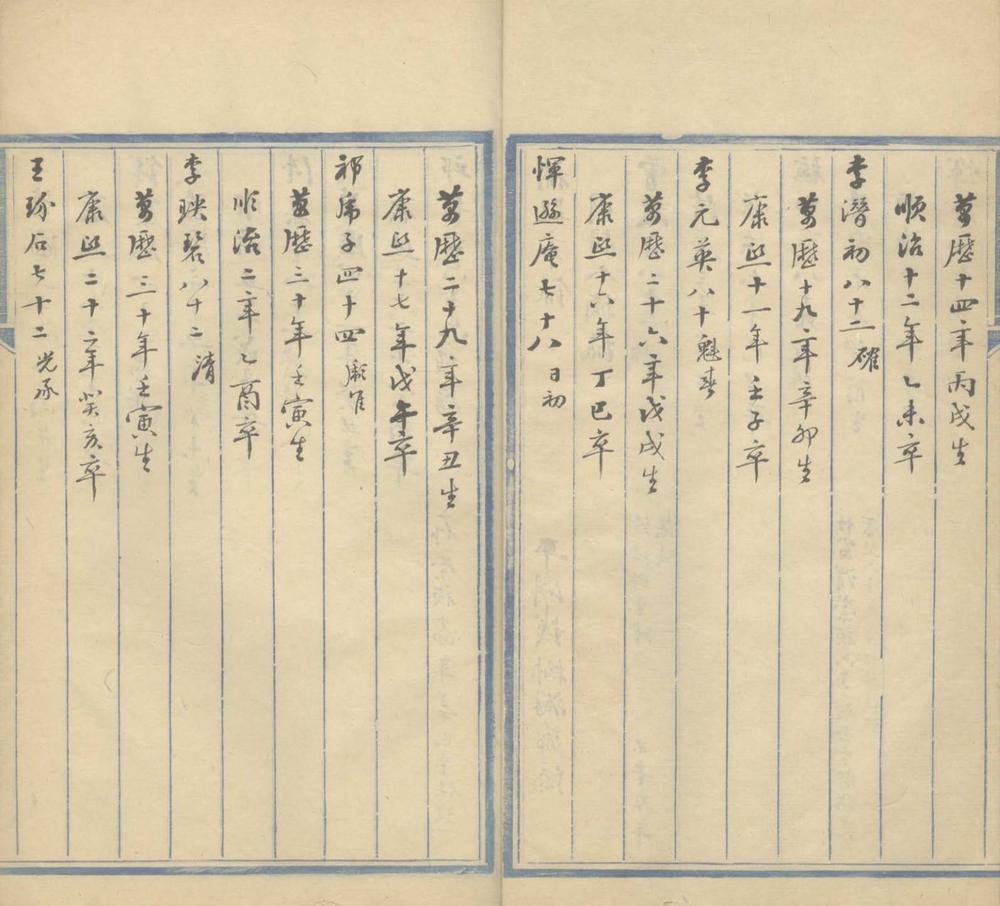 萬歷十四年丙戌生
順治十二年乙未卒
李潛初八十二確
萬歷十九年辛卯生
康熙十一年壬子卒
李元英八十魁春
萬歷二十六年戊戌生
康熙十六年丁巳卒
惲遜庵七十八日初
萬歷二十九年辛丑生
康熙十七年戊午卒
祁虎子四十四彪佳
萬歷三十年壬寅生
順治二年乙酉卒
李映碧八十二清
萬歷三十年壬寅生
康熙二十二年癸亥卒
王玠石七十二光承